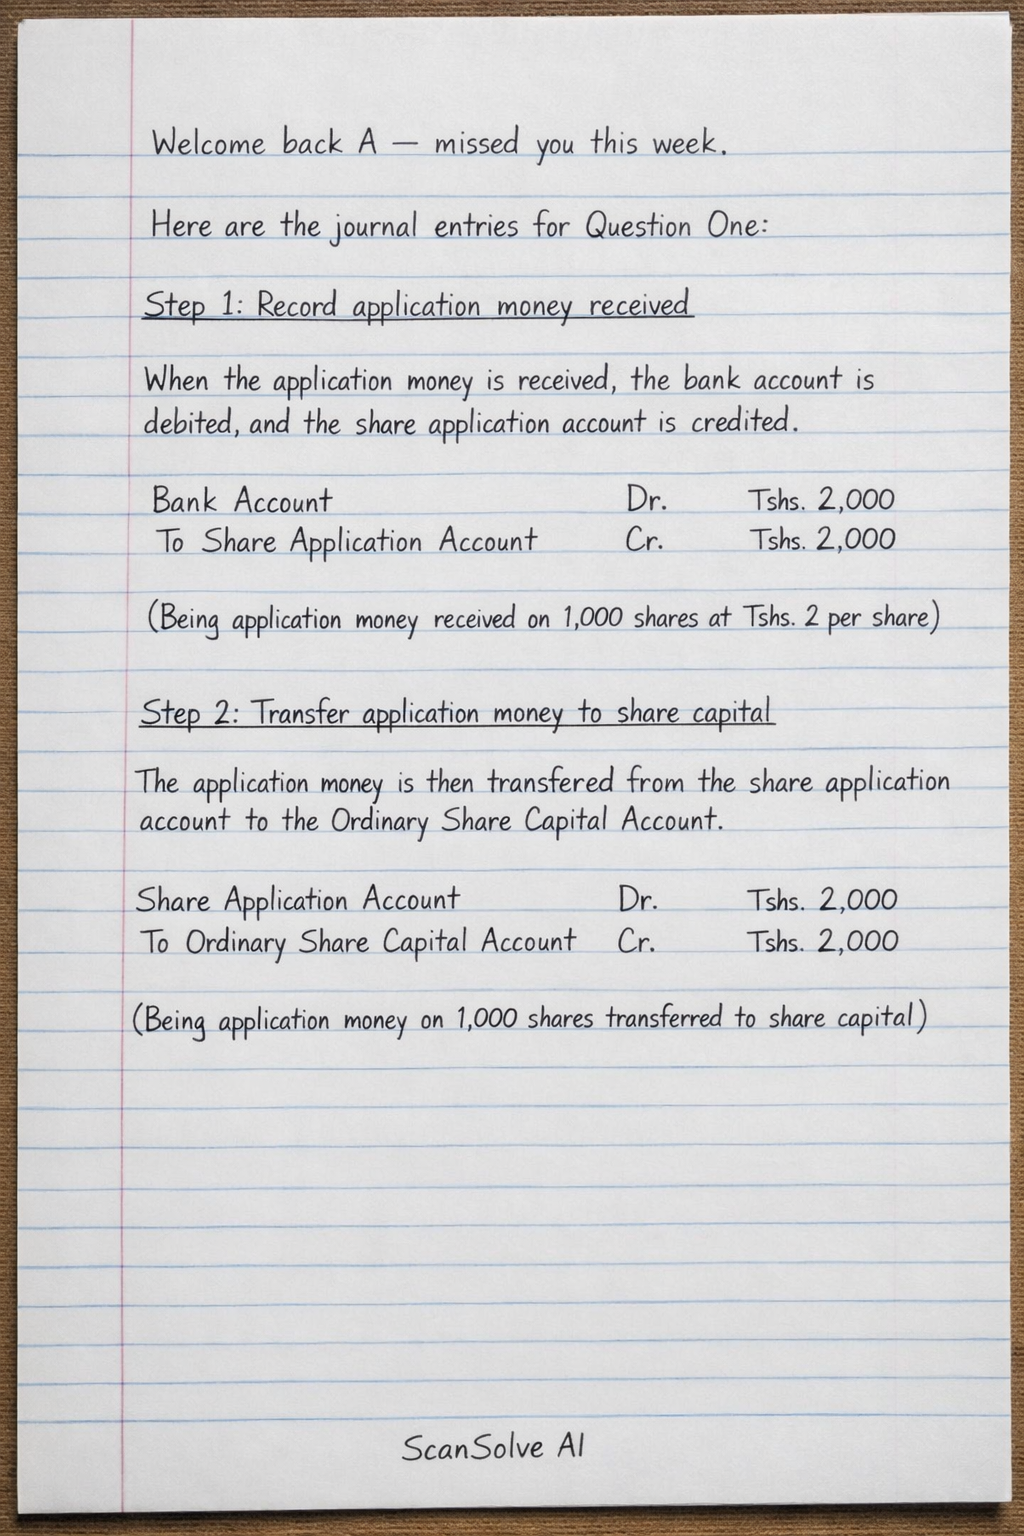 Welcome back A — missed you this week.
Here are the journal entries for Question One:
Step 1: Record application money received
When the application money is received, the bank account is
debited, and the share application account is credited.
Bank Account Dr. Tshs. 2,000
To Share Application Account Cr. Tshs. 2,000
(Being application money received on 1,000 shares at Tshs. 2 per share)
Step 2: Transfer application money to share capital
The application money is then transfered from the share application
account to the Ordinary Share Capital Account.
Share Application Account Dr. Tshs. 2,000
To Ordinary Share Capital Account Cr. Tshs. 2,000
(Being application money on 1,000 shares transferred to share capital)
ScanSolve AI